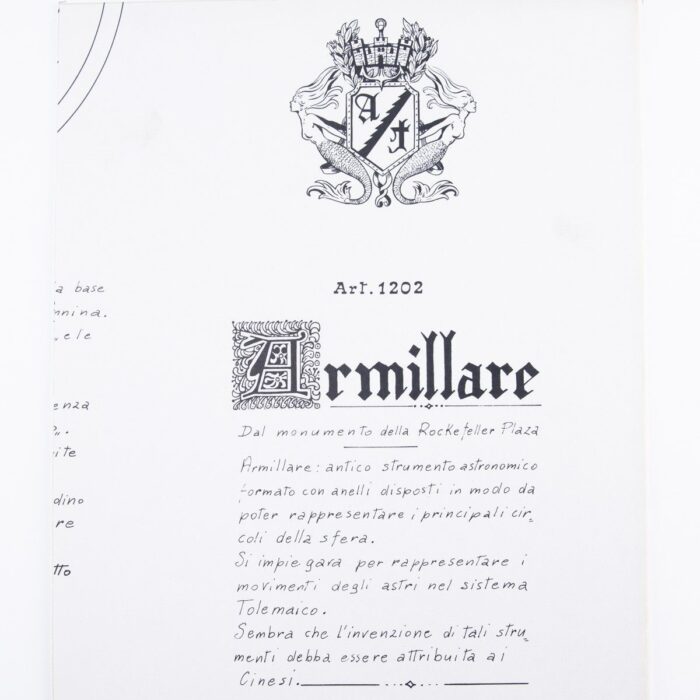 A
t
Art. 1202
Armillare
Dal monumento della Rockefeller Plaza
Armillare: antico strumento astronomico
formato con anelli disposti in modo da
poter rappresentare i principali cir-
coli della sfera.
Si impiegava per rappresentare i
movimenti degli astri nel sistema
Tolemaico.
Sembra che l'invenzione di tali stru-
menti debba essere attribuita ai
Cinesi.
base
ele
enza
ite
dino
re
tto